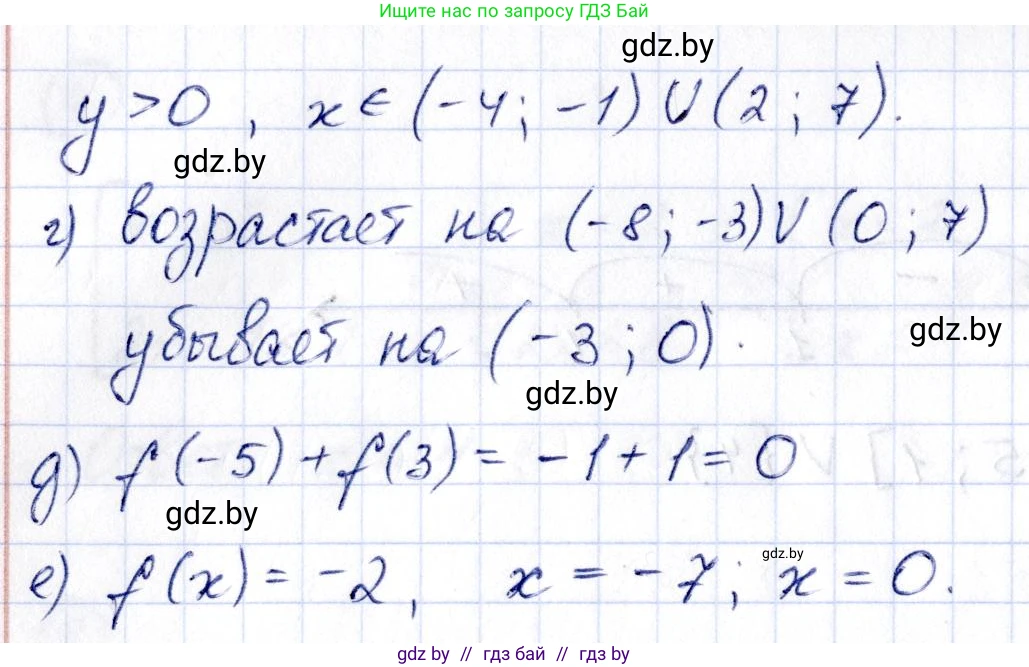 Ищите нас по запросу ГДЗ Бай
gdz.by
y > 0 , x ∈ (-4; -1) U (2 ; 7).
gdz.by
г) возрастает на (-8; -3) U (0 ; 7)
убывает на (-3 ; 0).
gdz.by
gdz.by
д) f(-5) + f(3) = -1 + 1 = 0
gdz.by
gdz.by
е) f(x) = -2, x = -7; x = 0.
gdz by // гдз бай // gdz by